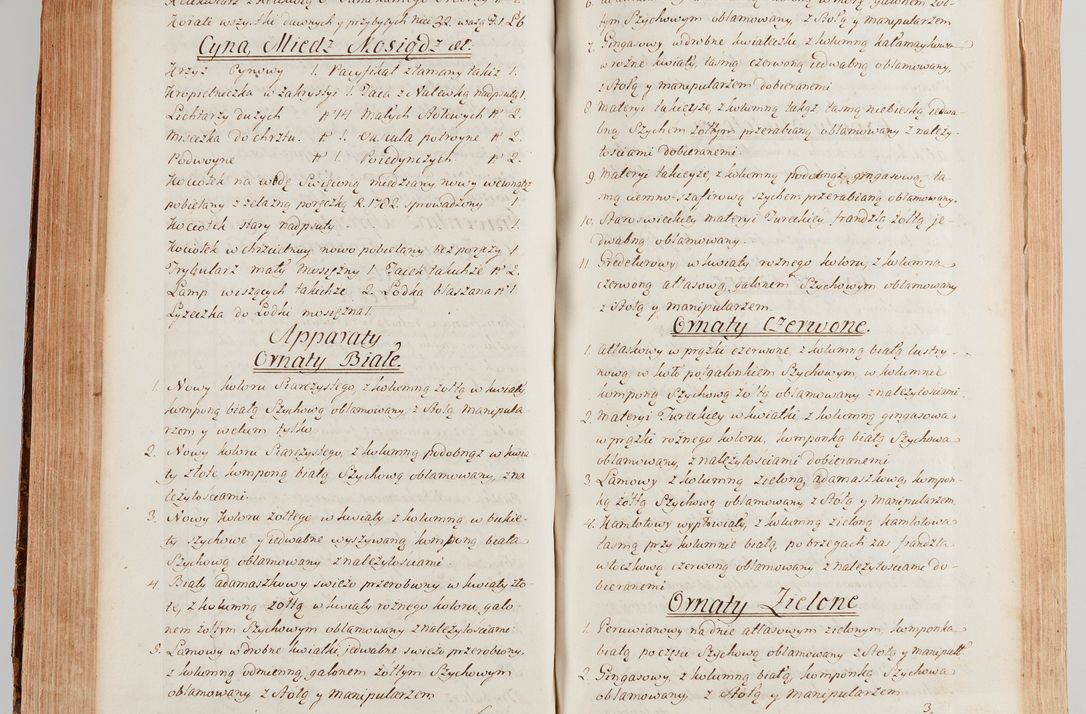 Korale wszystkie dawnych y przybyłych nici 32 ważą
Cyna, Miedź Mosiądz etc.
Krzyż Cynowy 1. Pacyfikał złamany takiż 1.
Kropielniczka w zakrystyi 1. Taca z Nalewką nadpsutą 1.
Lichtarzy dużych N° 14 Małych Stołowych N° 2.
Miseczka do chrztu. N° 1. Vascula potroyne N° 2.
Podwoyne N° 1. Poiedynczych N° 2.
Kociołek na wodę Święconą miedziany nowy wewnątrz
pobielany z żelazną porączką R. 1782. sprowadzony 1
Kociołek stary nadpsuty 1.
Kociołek w chrzcielnicy nowo pobielany bez porączy 1
Trybularz mały mosiężny 1. Tacek takichże N° 2.
Lamp wiszących takichże 2. Łódka blaszana N° 1.
Łyżeczka do Łodki mosiężna 1.
Apparaty
Ornaty Białe.
1. Nowy koloru Siarczystego, z kolumną żółtą w kwiaty,
kamponą białą Szychową oblamowany, z Stołą Manipula-
rzem y welum tylko
2. Nowy koloru Siarczystego, z kolumną podobnąż w kwia-
ty złote kamponą białą Szychową oblamowany, z na
leżytościami.
3. Nowy Koloru żółtego w kwiaty z kolumną w bukie-
ty szychowe y iedwabne wyszywaną kamponą białą
Szychową oblamowany z należytościami.
4 Biały adamaszkowy swieżo przerobiony, w kwiaty zło-
te, z kolumną żółtą w kwiaty rożnego koloru, galo-
nem żółtym Szychowym oblamowany z należytościami
5. Lamowy w drobne kwiatki, iedwabne swieżo przerobiony,
z kolumną odmienną, galonem żółtym Szychowym
oblamowany z Stołą y manipularzem
tym Szychowym oblamowany, z Stołą y manipularzem
7. Gingasowy w drobne kwiateczki, z kolumną kałamaykową
w rożne kwiaty, taśmą czerwoną iedwabną oblamowany,
z Stołą y manipularzem dobieranemi
8 Materyi takieyże, z kolumną takąż taśmą niebieską iedwa-
bną Szychem żółtym przerabianą oblamowany z należy-
tościami dobieranemi.
9 Materyi takieyże, z kolumną podobnąż gingasową ta-
smą ciemno-szafirową szychem przerabianą oblamowany.
10. Staroswieckiey materyi Tureckiey frandzlą żółtą je-
dwabną oblamowany.
11 Gredeturowy w kwiaty rożnego koloru, z kolumną
czerwoną atłasową, galonem Szychowym oblamowany
z Stołą y manipularzem.
Ornaty Czerwone.
1. Atłaskowy w prążki czerwone, z kolumną białą lustry-
nową, w koło pułgalonkiem Szychowym, w kolumnie
kamponą Szychową żółtą oblamowany z należytościami.
2. Materyi Tureckiey w kwiatki, z kolumną gingasową
w prążki rożnego koloru, kamponką białą Szychową
oblamowany, z należytościami dobieranemi
3 Lamowy z kolumną zieloną, adamaszkową, kampon-
ką żółtą Szychową oblamowany z Stołą y Manipularzem
4. Kamlotowy wypłowiały, z kolumną zieloną kamlotową
taśmą przy kolumnie białą, po brzegach zaś frandzlą
włoczkową czerwoną oblamowany z należytościami do-
bieranemi
Ornaty Zielone
1. Peruwianowy na dnie atłasowym zielonym, kamponką
białą po części Szychową oblamowany z Stołą y manipułł
2. Gingasowy, z kolumną białą, kamponką Szychową
oblamowany z Stołą y Manipularzem
3.